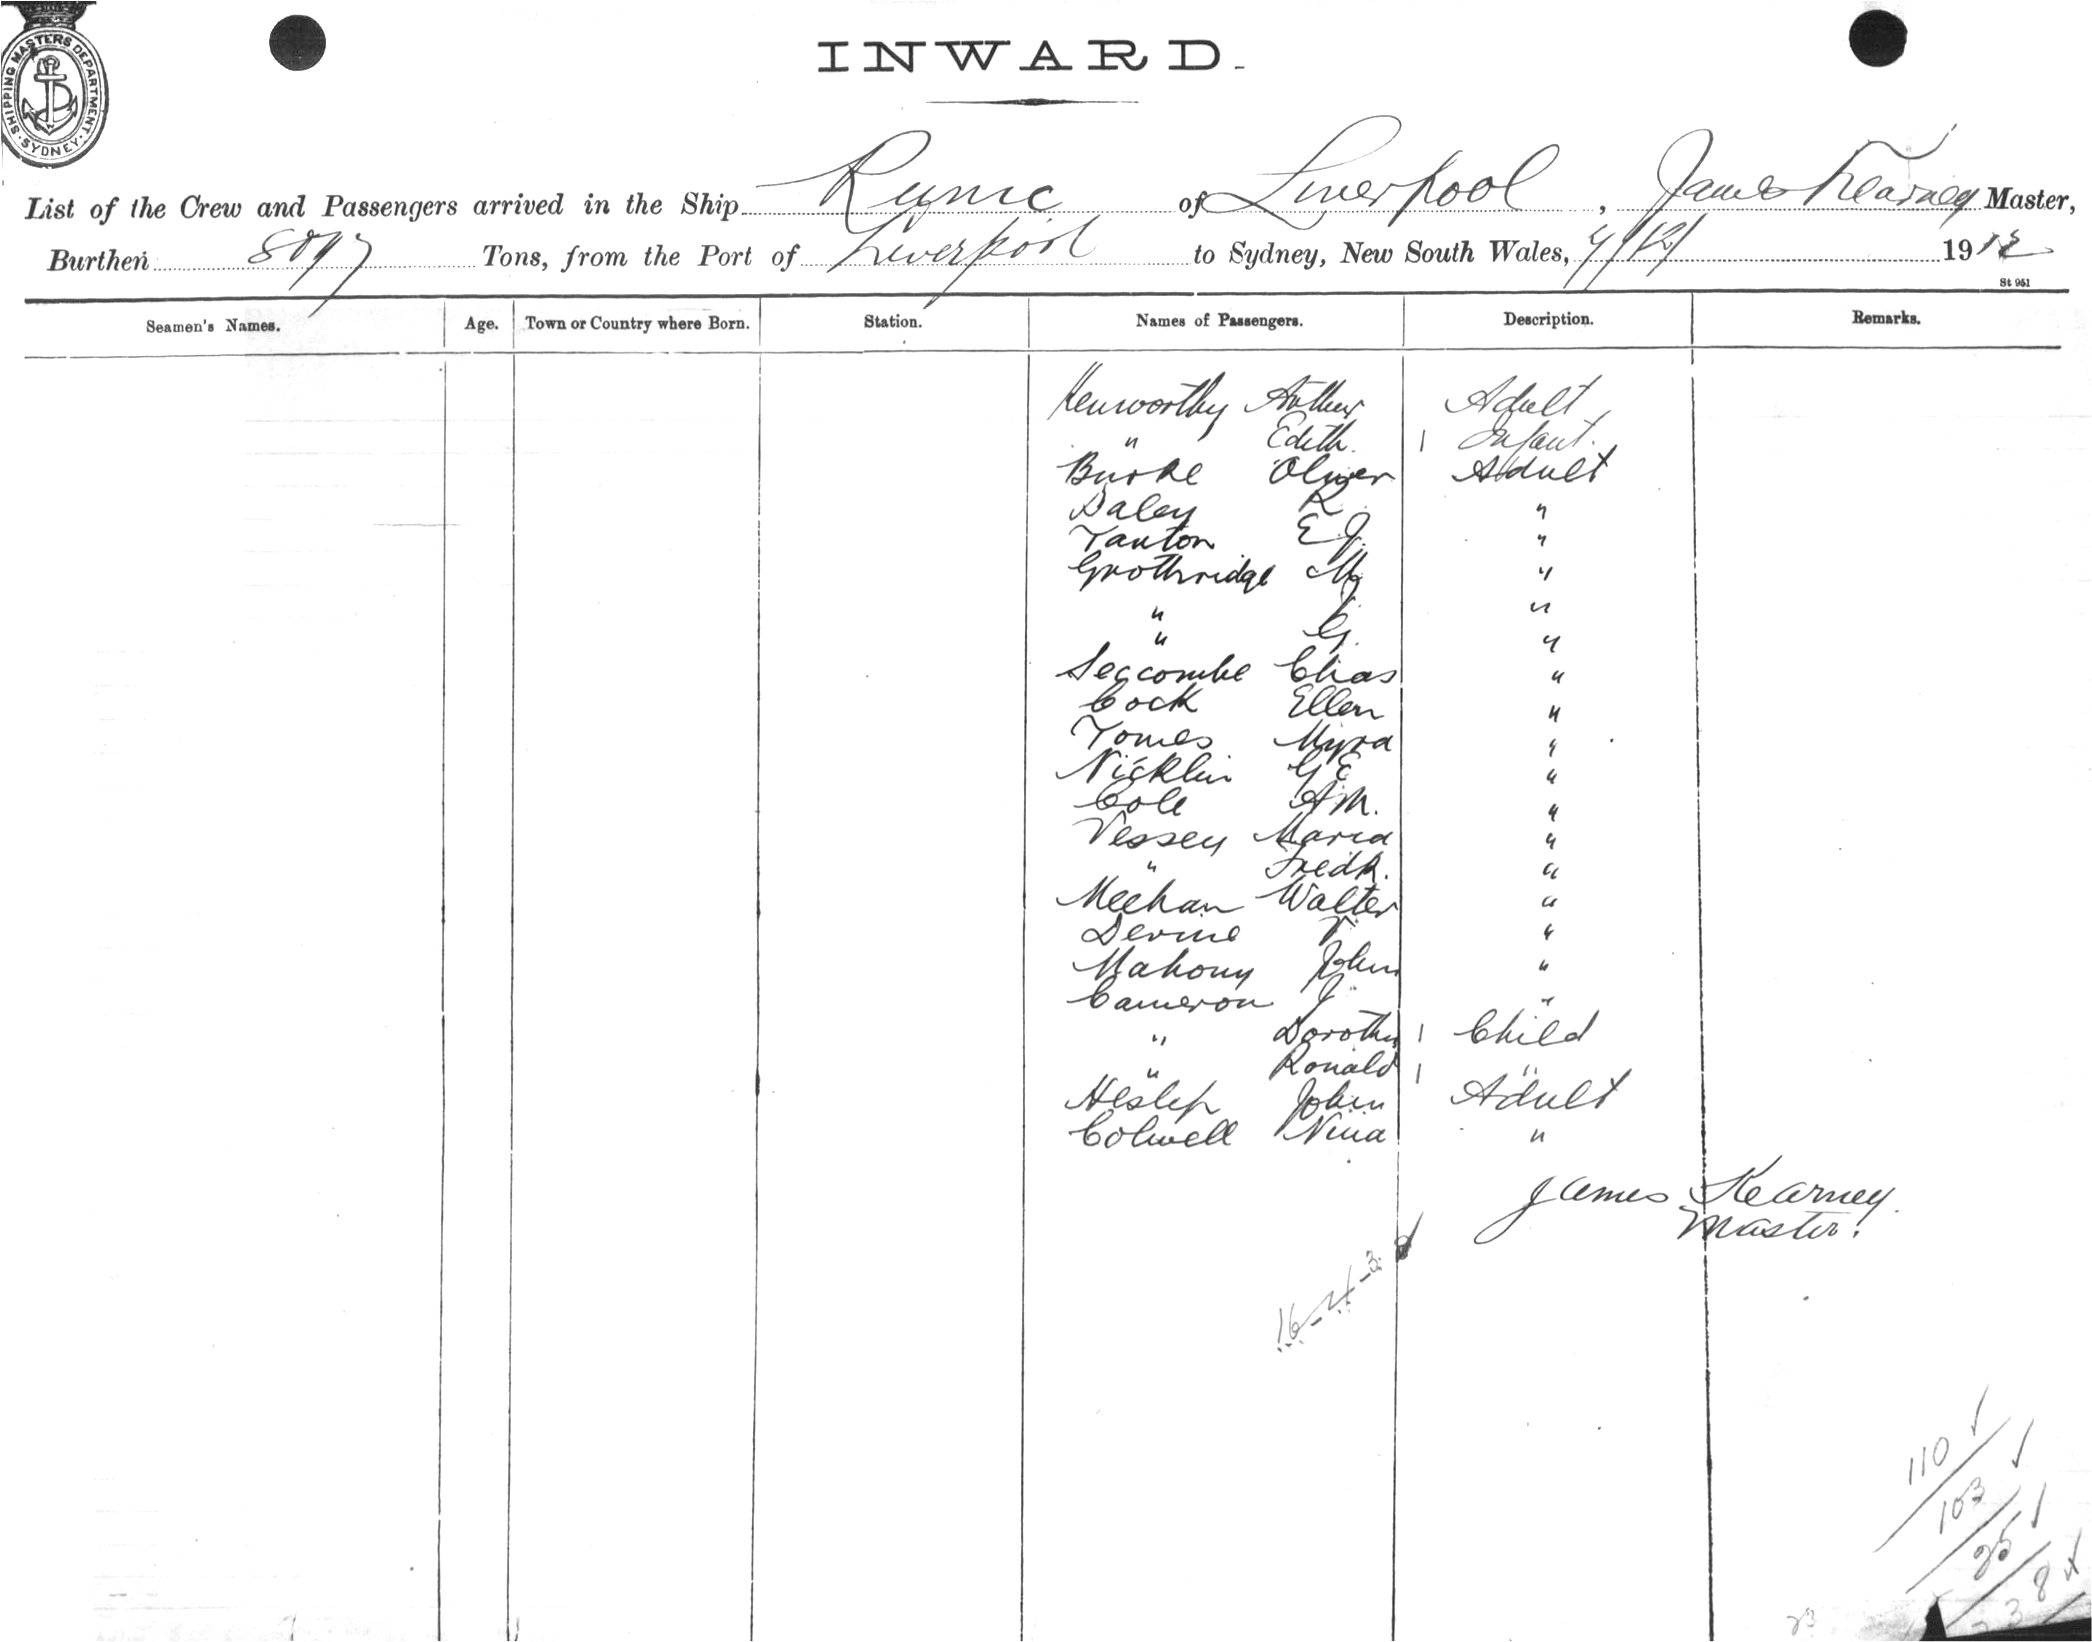 SHIPPING MASTERS DEPARTMENT. SYDNEY
INWARD.
List of the Crew and Passengers arrived in the Ship Runic of Liverpool, James Kearney Master,
Burthen Tons, from the Port of Liverpool to Sydney, New South Wales, 4/12/ 1912
St 951
Seamen's Names. Age. Town or Country where Born. Station. Names of Passengers. Description. Remarks.
Kenworthy Arthur Adult
" Edith 1 Infant.
Burke Oliver Adult
Daley R "
Tanton E J. "
Grothridge M "
" J. "
" G. "
Seccombe Chas "
Cock Ellen "
Tomes Myra "
Nicklin G E "
Cole A M. "
Vessey Maria "
" Fredk. "
Meehan Walter "
Devine "
Mahony John "
Cameron J "
" Dorothy 1 Child
" Ronald 1 "
Heslep John Adult
Colwell Nina "
James Kearney.
Master.
16-4-3
110
103
25
8
23